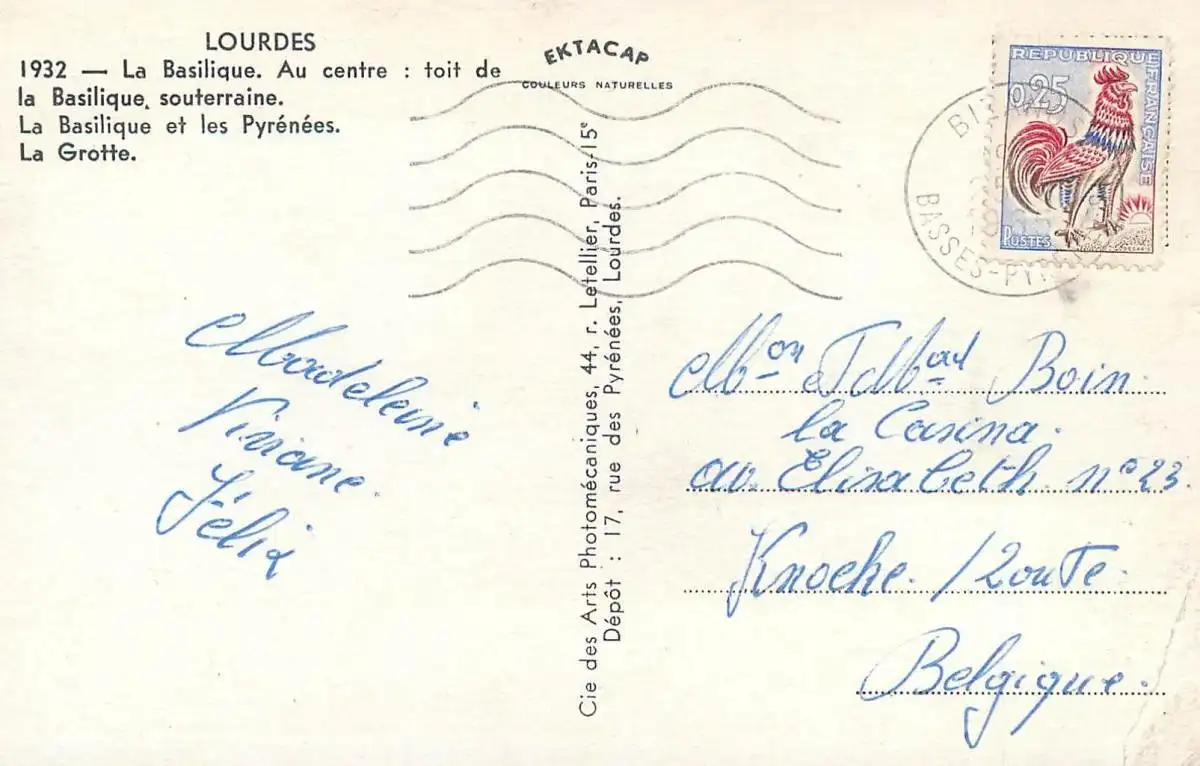 LOURDES
1932 — La Basilique. Au centre : toit de
la Basilique souterraine.
La Basilique et les Pyrénées.
La Grotte.
EKTACAP
COULEURS NATURELLES
REPUBLIQUE FRANÇAISE
0,25
POSTES
BASSES-PYR
Cie des Arts Photomécaniques, 44, r. Letellier, Paris-15e
Dépôt : 17, rue des Pyrénées, Lourdes.
Madeleine
Viviane.
Félix
Mon et Mad Boin.
la Casina.
av. Elisabeth n° 23.
Knocke. /Zoute.
Belgique.